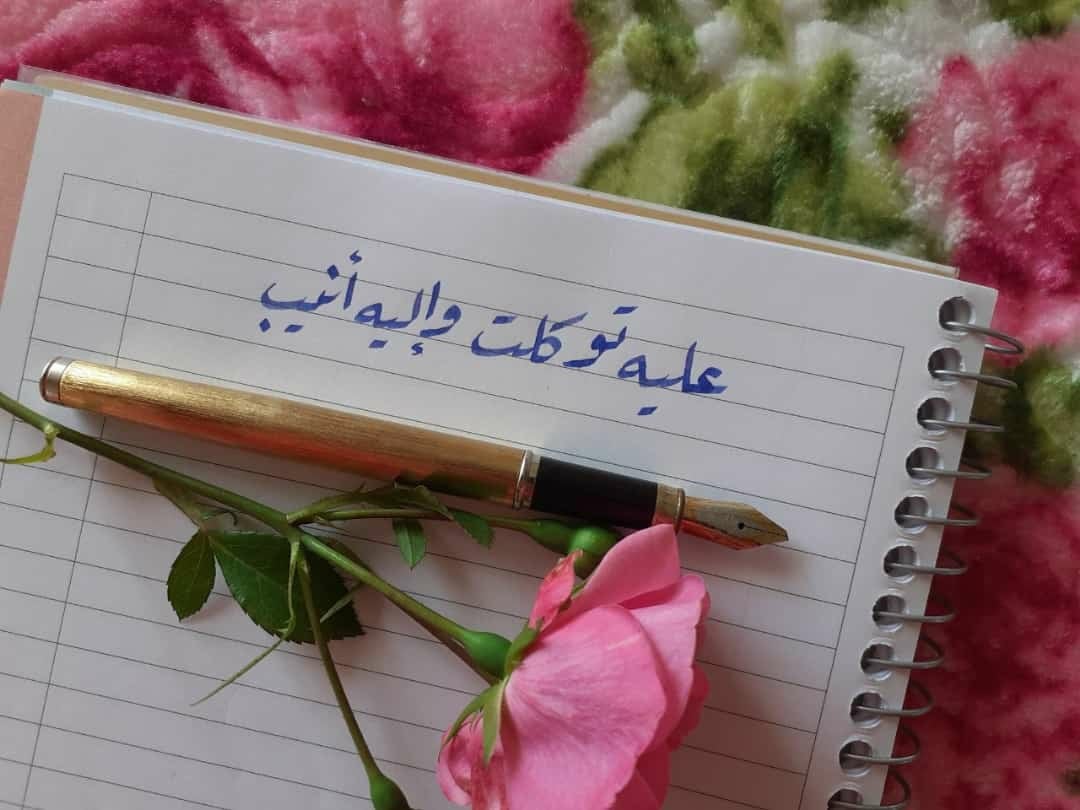 عليه توكلت وإليه أنيب